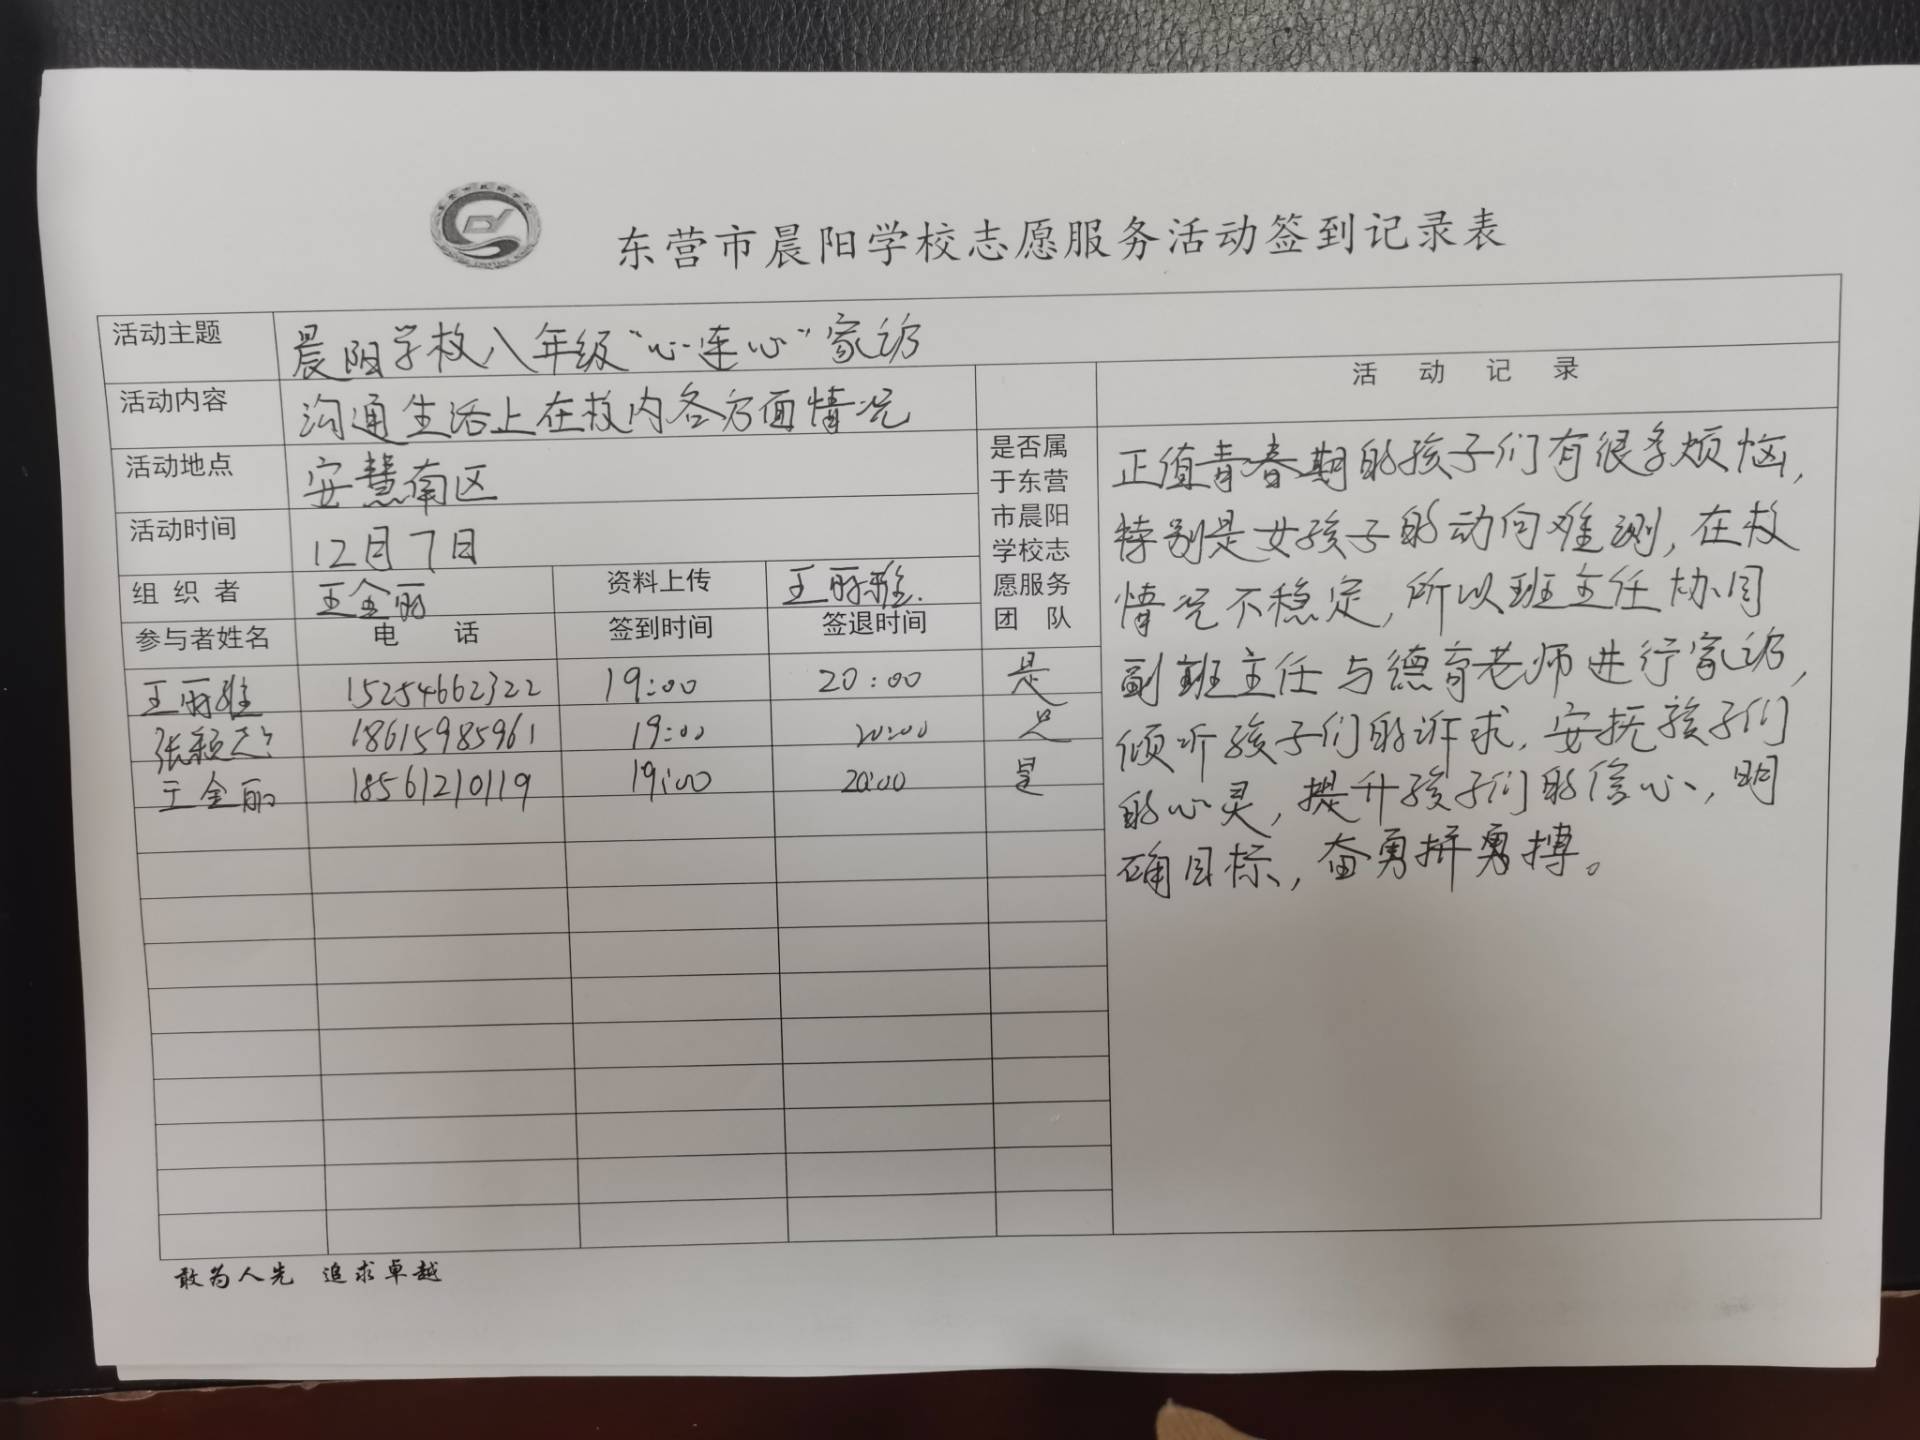 东营市晨阳学校志愿服务活动签到记录表
活动主题 晨阳学校八年级“心连心”家访
活动内容 沟通生活上在校内各方面情况
活动地点 安慧南区
活动时间 12月7日
组织者 王金丽 资料上传 王丽雅
参与者姓名 电话 签到时间 签退时间 是否属于东营市晨阳学校志愿服务团队
王丽雅 15254662322 19:00 20:00 是
张颖 18615985961 19:00 20:00 是
王金丽 18561210119 19:00 20:00 是
活动记录
正值青春期的孩子们有很多烦恼,
特别是女孩子的动向难测,在校
情况不稳定,所以班主任协同
副班主任与德育老师进行家访,
倾听孩子们的诉求,安抚孩子们
的心灵,提升孩子们的信心,明
确目标,奋勇拼勇搏。
敢为人先 追求卓越